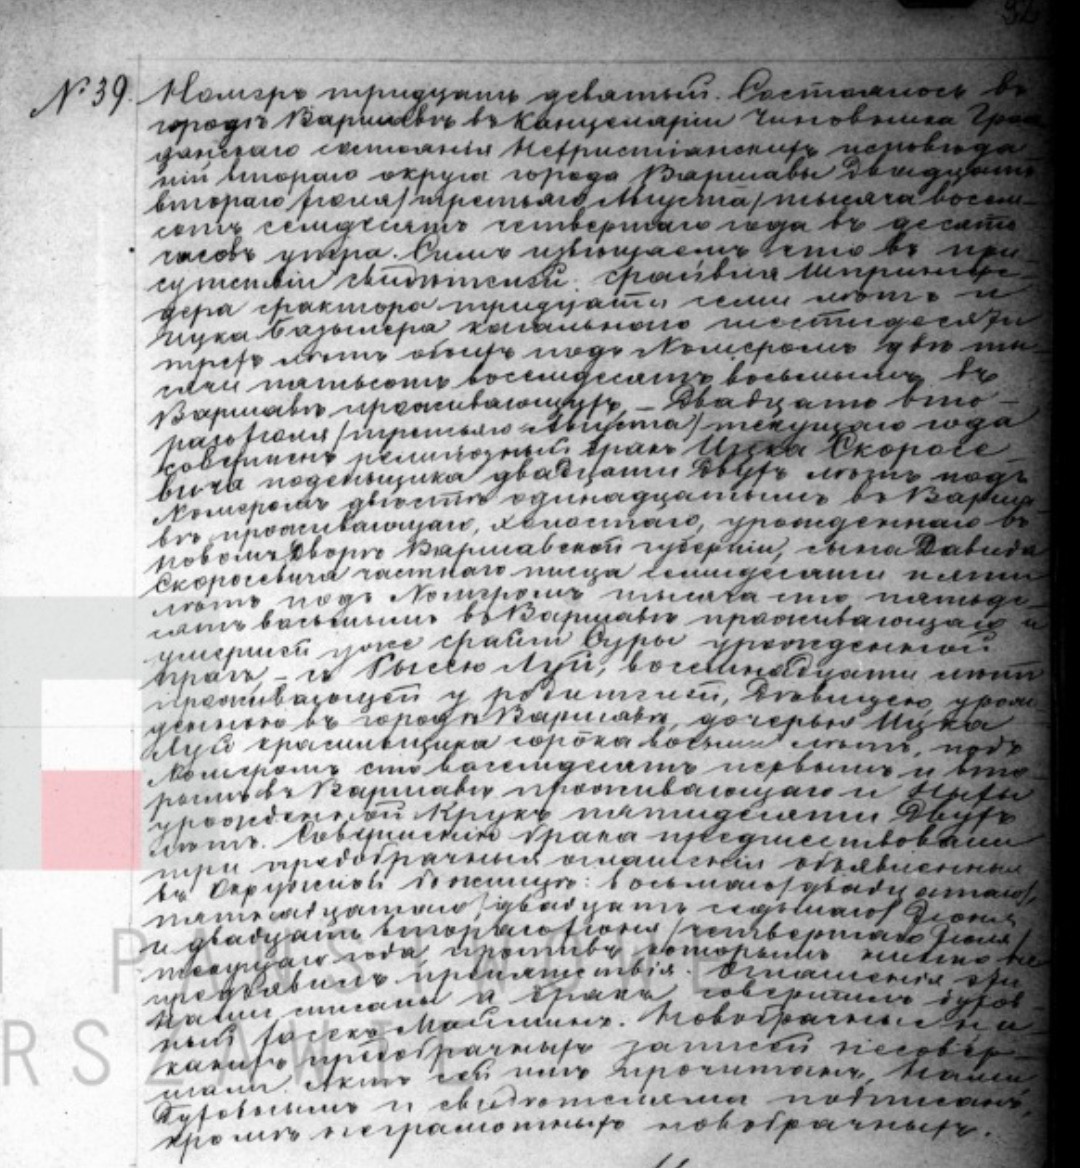 № 39.
Номеръ тридцать девятый. Состоялось въ
городѣ Варшавѣ въ Канцеляріи Чиновника Граж
данскаго состоянія Нехристіанскихъ исповѣда
ній втораго округа города Варшавы Двадцать
втораго Іюля /третьяго Августа/ тысяча восем-
сотъ семдесятъ четвертаго года въ десять
часовъ утра. Симъ извѣщаемъ что въ при-
сутствіи свидѣтелей:
дера фактора тридцати семи лѣтъ и
Ицка кагальнаго шестидесяти
трехъ лѣтъ обоихъ подъ Номеромъ двѣ ты-
сячи пятьсотъ восемдесятъ восьмымъ въ
Варшавѣ проживающихъ, – Двадцать вто-
раго Іюля /третьяго Августа/ текущаго года
совершенъ религіозный бракъ Ицка Скоросе-
вича поденщика двадцати двухъ лѣтъ подъ
Номеромъ двѣстѣ одинадцатымъ въ Варша
вѣ проживающаго, холостаго, урожденнаго въ
Новомъ Дворѣ Варшавской губерніи, сына Давида
Скоросевича частнаго писца семидесяти пяти
лѣтъ подъ Номеромъ тысяча сто пятьде-
сятъ восьмымъ въ Варшавѣ проживающаго и
умершей уже Суры урожденной
– съ Луй, восемнадцати лѣтъ
проживающей у родителей, Дѣвицею, урож
денною въ городѣ Варшавѣ, дочерью Ицка
Луй красильщика сорока восьми лѣтъ, подъ
Номеромъ сто восемдесятъ первымъ и вто-
рымъ въ Варшавѣ проживающаго и
урожденной Крукъ пятидесяти Двухъ
лѣтъ. Совершенію брака предшествовали
три предбрачныя оглашенія объявленныя
въ Окружной божницѣ: восьмаго /двадцатаго/,
пятнадцатаго /двадцать седьмаго/ Іюня
и двадцать втораго Іюня /четвертаго Іюля/
текущаго года, противъ которыхъ никто не
предъявилъ препятствія. Оглашенія эти
Нами списаны а бракъ совершилъ духов-
ный Майминъ. Новобрачные ни-
какихъ предбрачныхъ записей несовер-
шали. Актъ сей имъ прочитанъ, Нами
Духовнымъ и свидѣтелями подписанъ,
кромѣ неграмотныхъ новобрачныхъ.